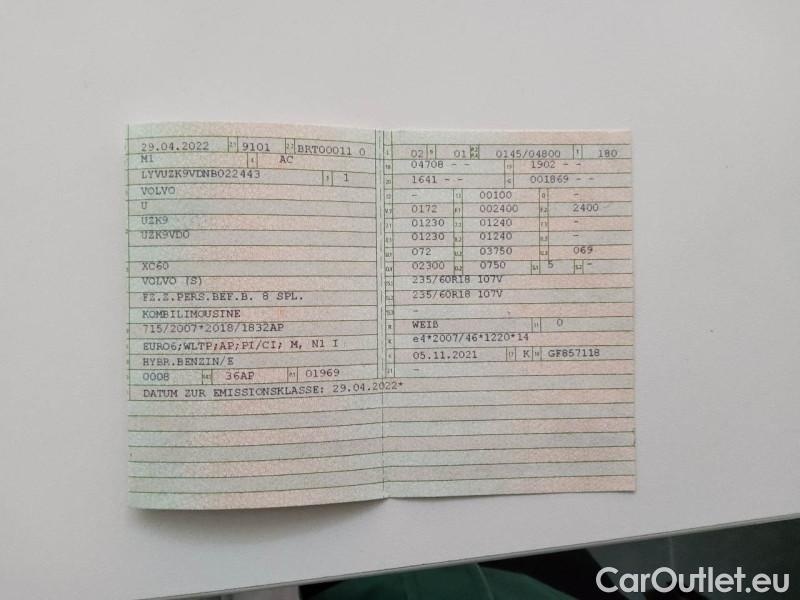 29.04.2022 9101 BRT00011 0
M1 AC
LYVUZK9VDNB022443 1
VOLVO
U
UZK9
UZK9VD0
XC60
VOLVO (S)
FZ.Z.PERS.BEF.B. 8 SPL.
KOMBILIMOUSINE
715/2007*2018/1832AP
EURO6;WLTP;AP;PI/CI; M, N1 I
HYBR.BENZIN/E
0008 36AP 01969
DATUM ZUR EMISSIONSKLASSE: 29.04.2022*
02 01 0145/04800 180
04708 - - 1902 - -
1641 - - 001869 - -
- 00100 -
0172 002400 2400
01230 01240 -
01230 01240 -
072 03750 069
02300 0750 5 -
235/60R18 107V
235/60R18 107V
-
WEIß 0
e4*2007/46*1220*14
05.11.2021 K GF857118
-
CarOutlet.eu